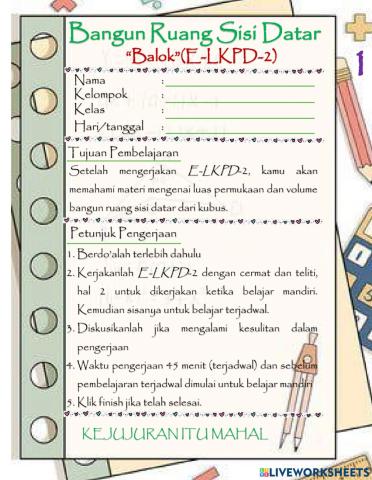 Bangun Ruang Sisi Datar
"Balok"(E-LKPD-2)
1
Nama :
Kelompok :
Kelas :
Hari/tanggal :
Tujuan Pembelajaran
Setelah mengerjakan E-LKPD-2, kamu akan
memahami materi mengenai luas permukaan dan volume
bangun ruang sisi datar dari kubus.
Petunjuk Pengerjaan
1. Berdo'alah terlebih dahulu
2. Kerjakanlah E-LKPD-2 dengan cermat dan teliti,
hal 2 untuk dikerjakan ketika belajar mandiri.
Kemudian sisanya untuk belajar terjadwal.
3. Diskusikanlah jika mengalami kesulitan dalam
pengerjaan
4. Waktu pengerjaan 45 menit (terjadwal) dan sebelum
pembelajaran terjadwal dimulai untuk belajar mandiri
5. Klik finish jika telah selesai.
KEJUJURAN ITU MAHAL
LIVEWORKSHEETS